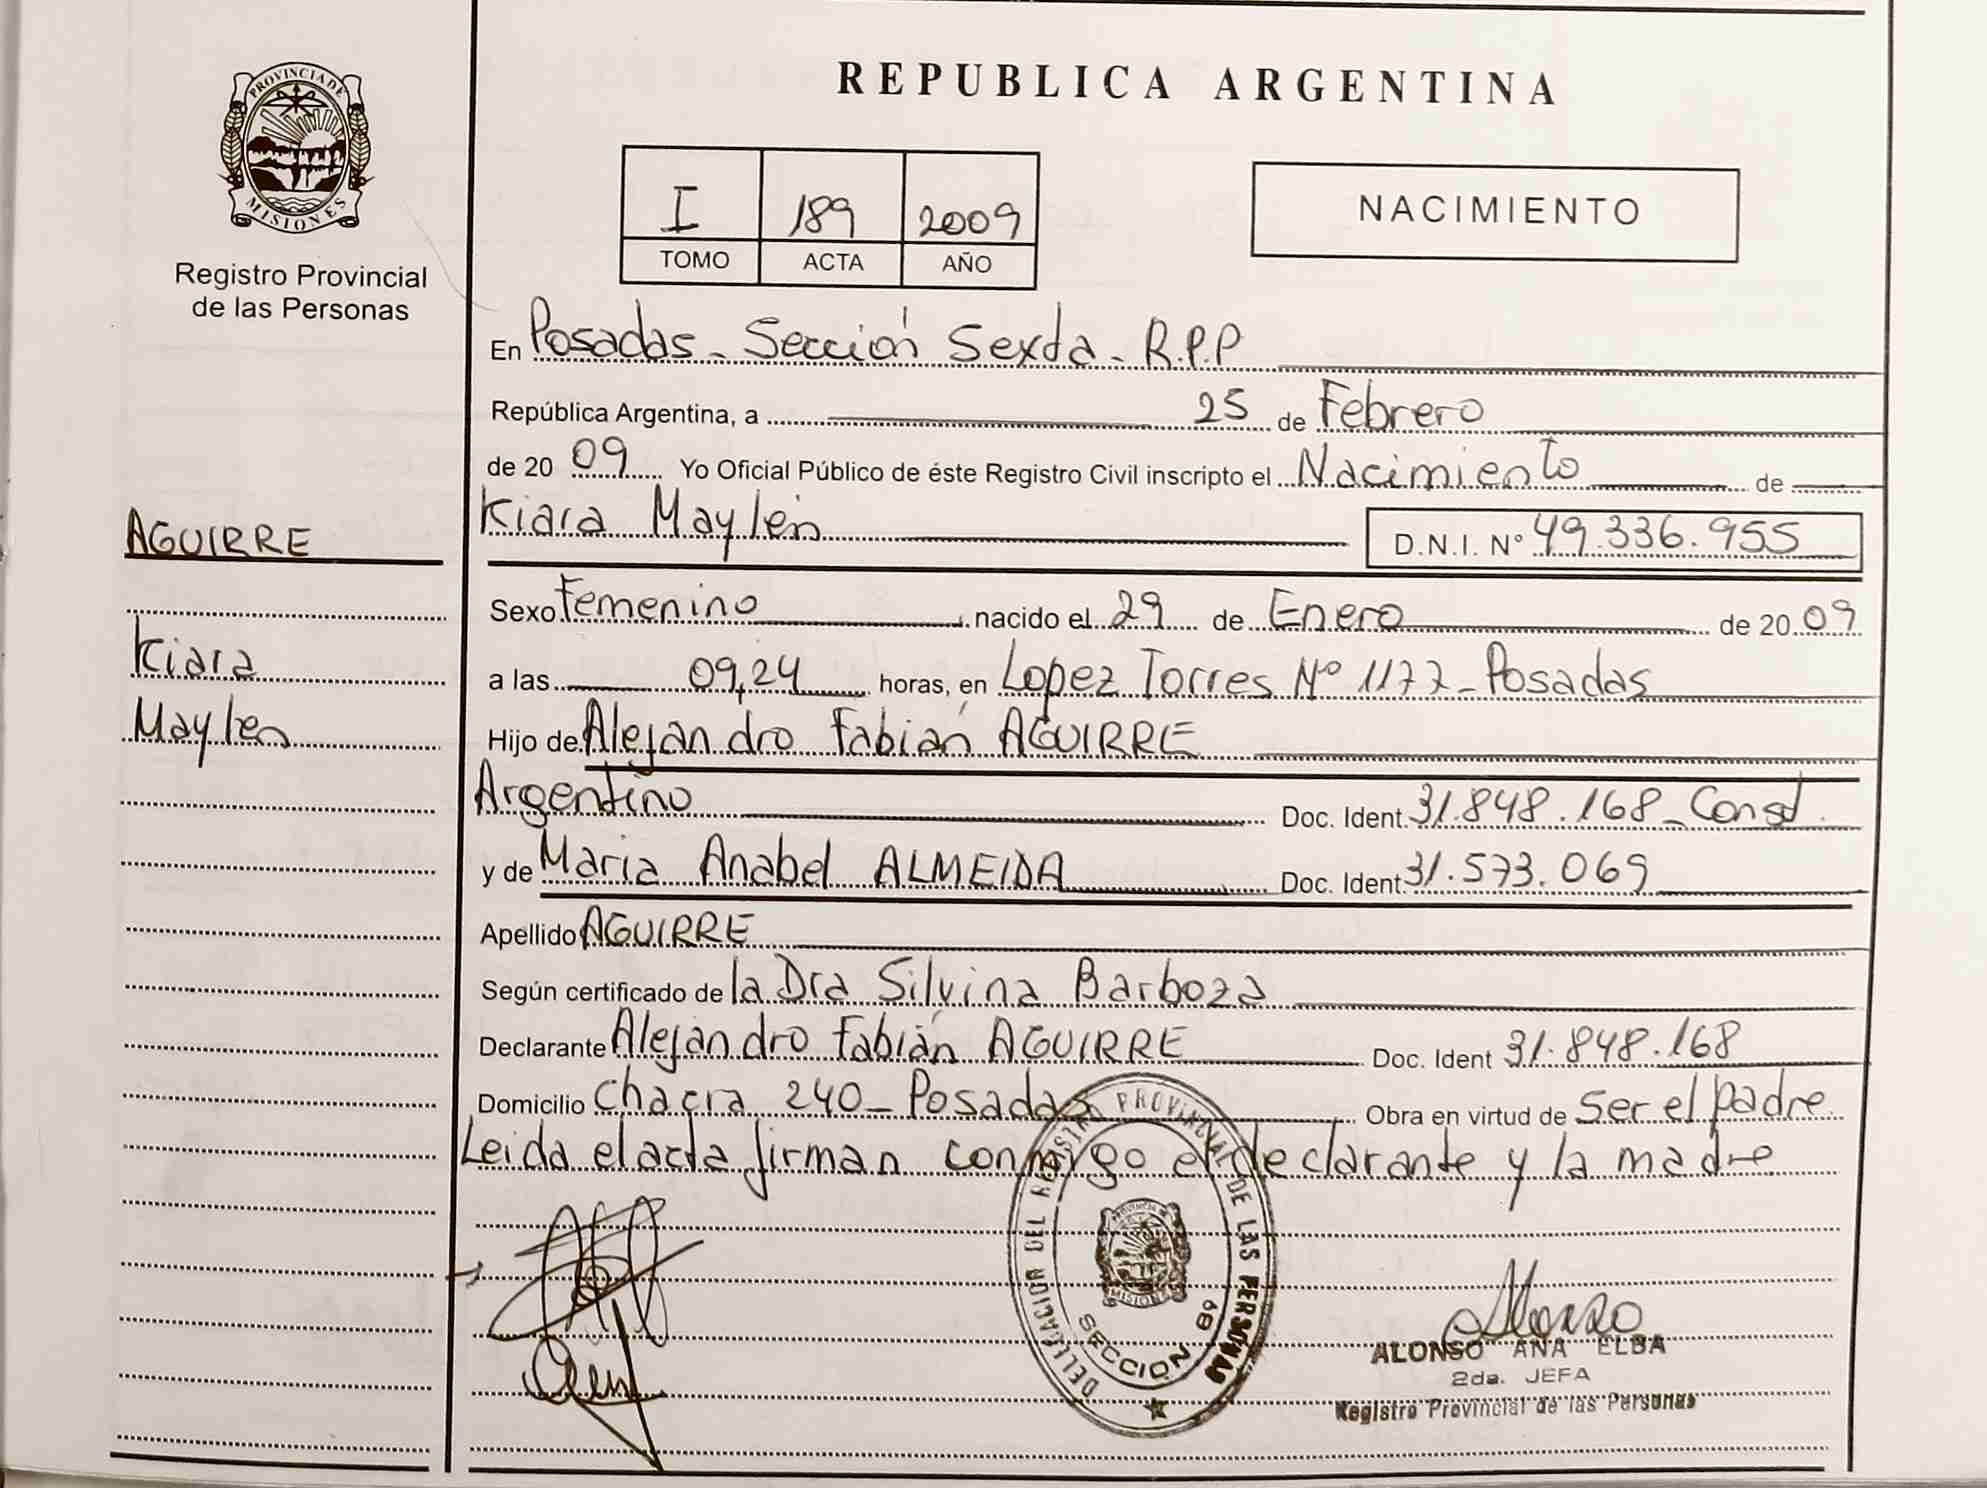 PROVINCIA DE
MISIONES
Registro Provincial
de las Personas
AGUIRRE
Kiara
Maylen
REPUBLICA ARGENTINA
I 189 2009
TOMO ACTA AÑO
NACIMIENTO
En Posadas - Sección Sexta - R.P.P
República Argentina, a 25 de Febrero
de 20 09 Yo Oficial Público de éste Registro Civil inscripto el Nacimiento de
Kiara Maylen D.N.I. Nº 49.336.955
Sexo Femenino nacido el 29 de Enero de 20 09
a las 09,24 horas, en Lopez Torres Nº 1177 - Posadas
Hijo de Alejandro Fabián AGUIRRE
Argentino Doc. Ident. 31.848.168 - Const.
y de Maria Anabel ALMEIDA Doc. Ident 31.573.069
Apellido AGUIRRE
Según certificado de la Dra Silvina Barboza
Declarante Alejandro Fabián AGUIRRE Doc. Ident 31.848.168
Domicilio Chacra 240 - Posadas Obra en virtud de Ser el padre
Leida el acta firman conmigo el declarante y la madre
DELEGACION DEL REGISTRO PROVINCIAL DE LAS PERSONAS
PROVINCIA DE
MISIONES
SECCION 89
Alonso
ALONSO ANA ELBA
2da. JEFA
Registro Provincial de las Personas